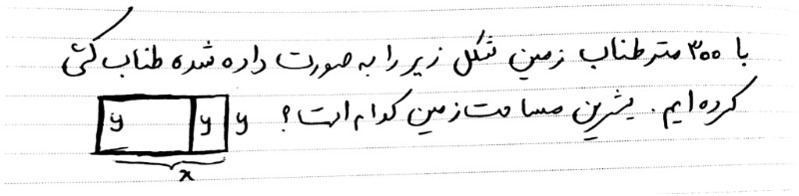 با ۳۰۰ متر طناب زمین شکل زیر را به صورت داده شده طناب کشی
کرده ایم. بیشترین مساحت زمین کدام است؟
y y y
x